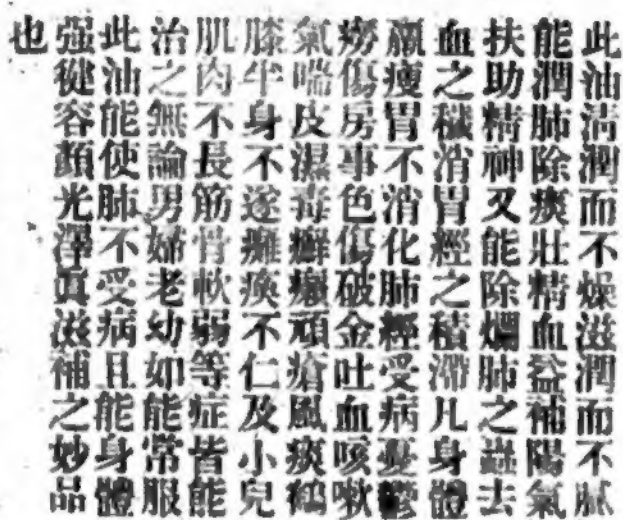 此油清潤而不燥滋潤而不膩
能潤肺除痰壯精血益補陽氣
扶助精神又能除爛肺之蟲去
血之穢消胃經之積滯凡身體
羸瘦胃不消化肺經受病憂鬱
癆傷房事色傷破金吐血咳嗽
氣喘皮濕毒癬癩頑瘡風痰鶴
膝半身不遂癱瘓不仁及小兒
肌肉不長筋骨軟弱等症皆能
治之無論男婦老幼如能常服
此油能使肺不受病且能身體
强健容顏光澤眞滋補之妙品
也